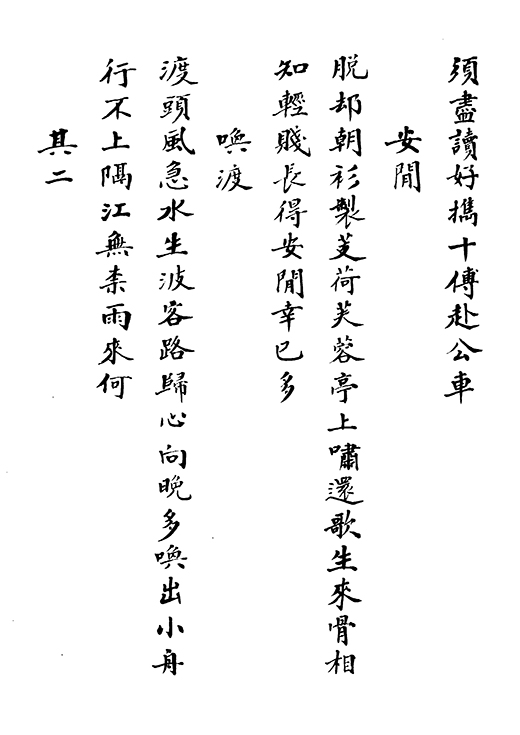 須盡讀好攜十傅赴公車
安閒
脱却朝衫製芰荷芙蓉亭上嘯還歌生來骨相
知輕賤長得安閒幸已多
喚渡
渡頭風急水生波客路歸心向晚多喚出小舟
行不上隔江無柰雨來何
其二